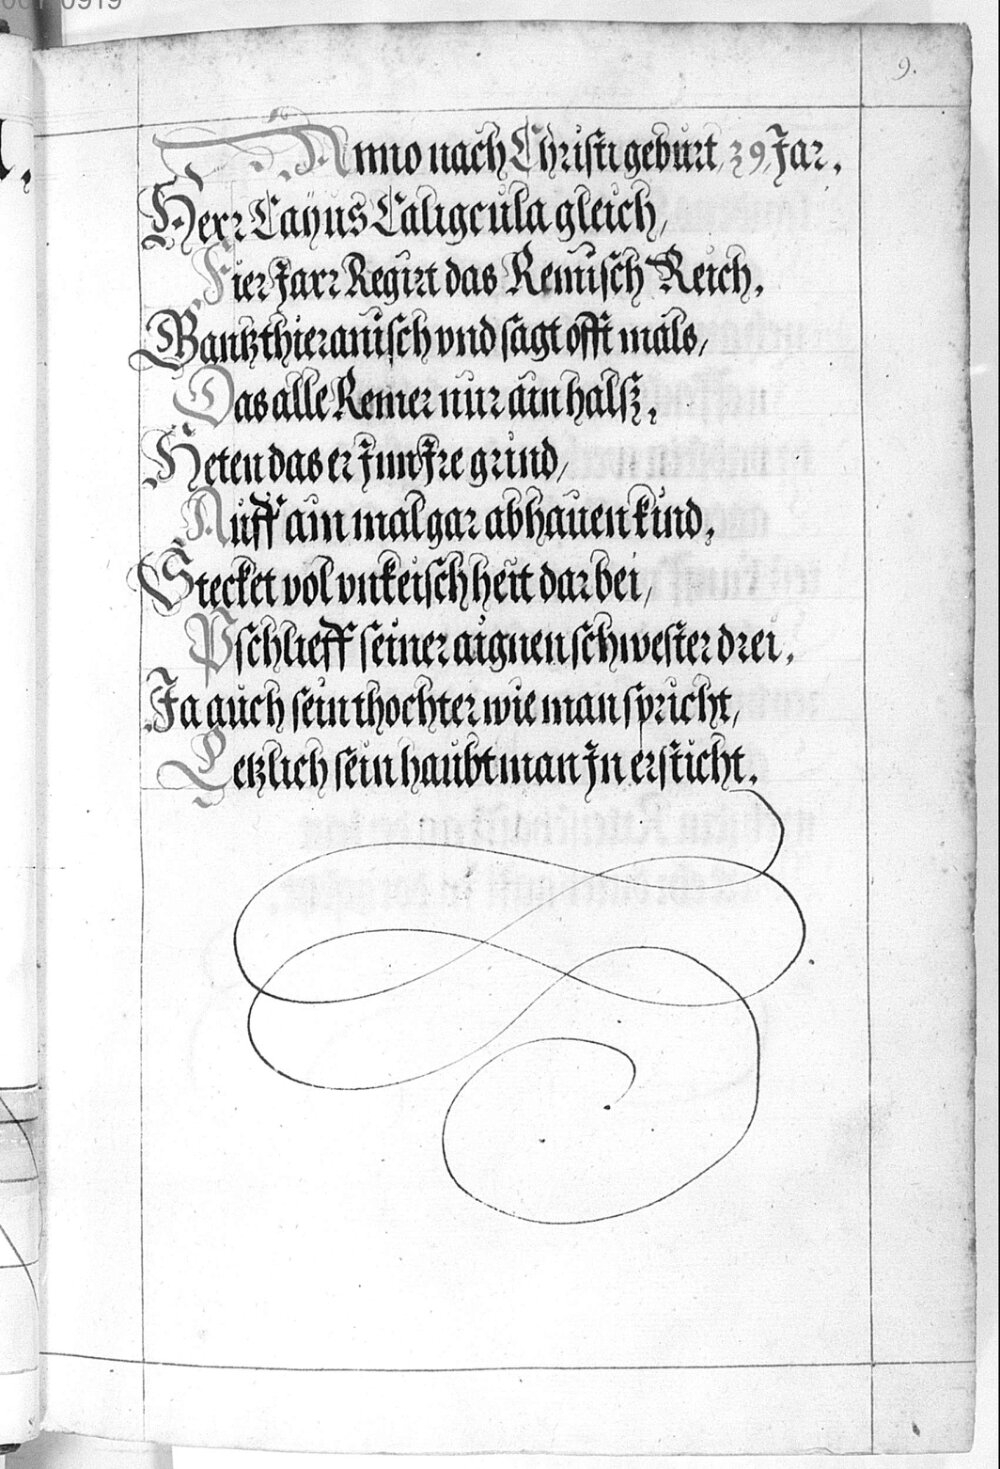 9.
Anno nach Christi gebürt 39 Jar.
Herr Cayus Caligcüla gleich,
Fier Jarr Regirt das Remisch Reich.
Gantz thieranisch vnd sagt offt mals,
Das alle Remer nür ain halsz,
Heten das er Jnn Jre grind,
Aüff ain mal gar abhaüen kind.
Stecket vol vnkeischheit darbei,
Pschlieff seiner aignen schwester drei.
Ja aüch sein thochter wie man spricht,
Letzlich sein haübtman Jn ersticht.